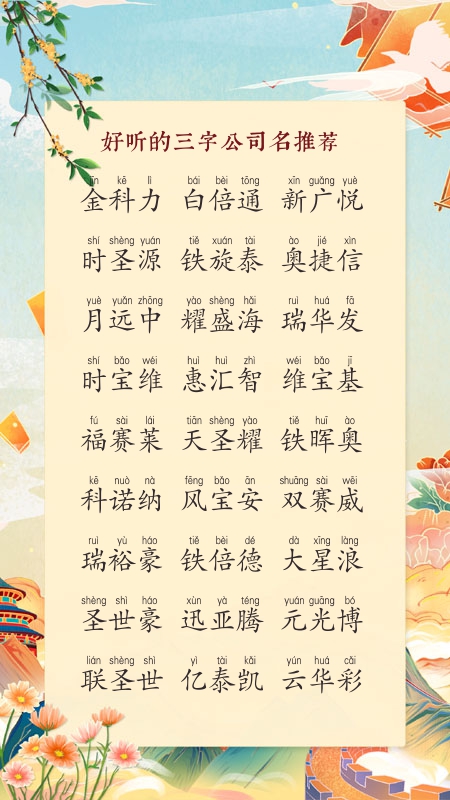 好听的三字公司名推荐
jīn kē lì bái bèi tōng xīn guǎng yuè
金科力 白倍通 新广悦
shí shèng yuán tiě xuán tài ào jié xìn
时圣源 铁旋泰 奥捷信
yuè yuǎn zhōng yào shèng hǎi ruì huá fā
月远中 耀盛海 瑞华发
shí bǎo wéi huì huì zhì wéi bǎo jī
时宝维 惠汇智 维宝基
fú sài lái tiān shèng yào tiě huī ào
福赛莱 天圣耀 铁晖奥
kē nuò nà fēng bǎo ān shuāng sài wēi
科诺纳 风宝安 双赛威
ruì yù háo tiě bèi dé dà xīng làng
瑞裕豪 铁倍德 大星浪
shèng shì háo xùn yà téng yuán guāng bó
圣世豪 迅亚腾 元光博
lián shèng shì yì tài kǎi yún huá cǎi
联圣世 亿泰凯 云华彩